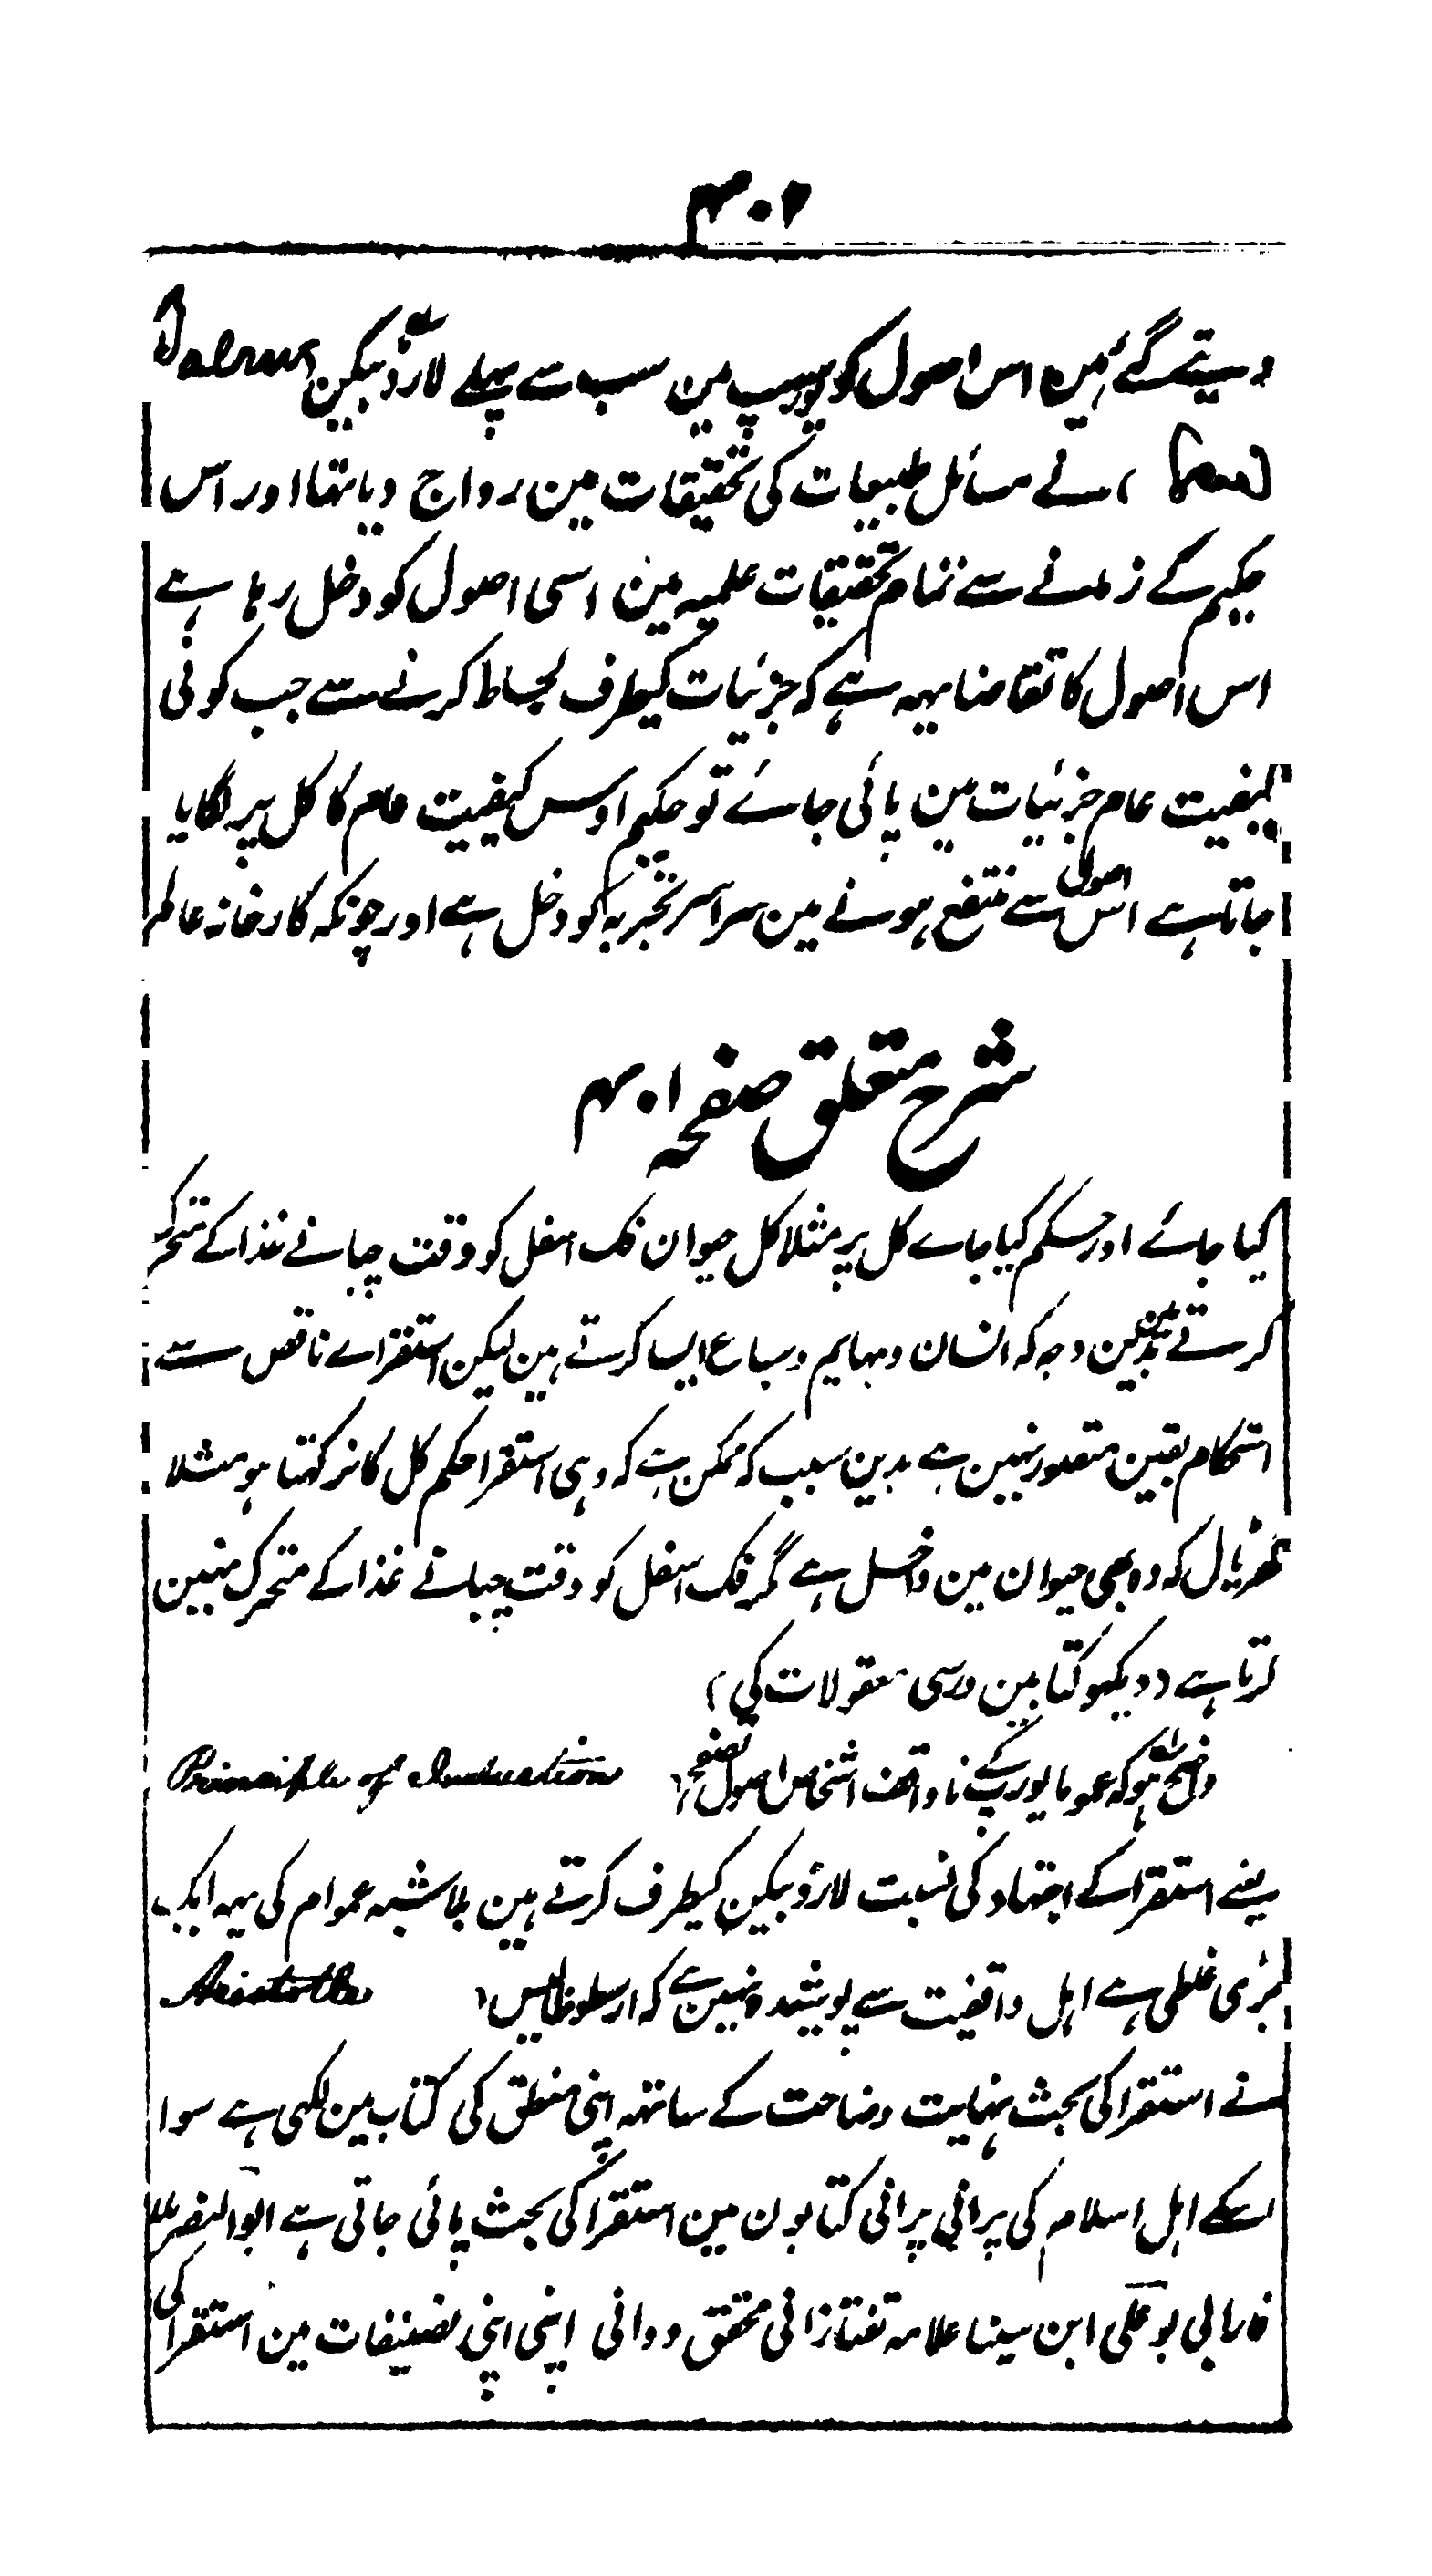 ۴۰۲
دیتے گئے ہین اس اصول کو یورپ مین سب سے پہلے لارڈ بیکن
نے مسائل طبیعات کی تحقیقات مین رواج دیا تھا اور اس
حکیم کے زمانے سے تمام تحقیقات علمیہ مین اسی اصول کو دخل رہا ہے
اس اصول کا تقاضا یہہ ہے کہ جزئیات کیطرف لحاظ کرنے سے جب کوئی
کیفیت عام جزئیات مین پائی جائے تو حکم اوس کیفیت عام کا کل پر لگایا
جاتا ہے اس اصول سے منتفع ہونے مین سراسر تجربہ کو دخل ہے اور چونکہ کارخانہ عالم
شرح متعلق صفحہ ۴۰۱
کیا جائے اور حکم کیا جاے کل پر مثلا کل حیوان فک اسفل کو وقت چبانے غذا کے متحرک
کرتے ہین بدین وجہ کہ انسان و بہایم و سباع ایسا کرتے ہین لیکن استقراے ناقص سے
استحکام یقین متصور نہین ہے بدین سبب کہ ممکن ہے کہ وہی استقرا حکم کل کا نہ رکہتا ہو مثلا
گھڑیال کہ وہ بھی حیوان مین داخل ہے مگر فک اسفل کو وقت چبانے غذا کے متحرک نہین
کرتا ہے (دیکھو کتابین درسی معقولات کی)
واضح ہو کہ عموما یورپ کے ناواقف اشخاص اصول تصفح ( Principle of Induction
یعنے استقرا کے اجتہاد کی نسبت لارڈ بیکن کیطرف کرتے ہین بلاشبہ عوام کی یہہ ایک
بڑی غلطی ہے اہل واقفیت سے پوشیدہ نہین ہے کہ ارسطوطالیس ( Aristotle
نے استقرا کی بحث نہایت وضاحت کے ساتہہ اپنی منطق کی کتاب مین لکھی ہے سوا
اسکے اہل اسلام کی پرانی پرانی کتابون مین استقرا کی بحث پائی جاتی ہے ابوالنصر
فارابی بوعلی ابن سینا علامہ تفتازانی محقق دوانی اپنی اپنی تصنیفات مین استقرا کی